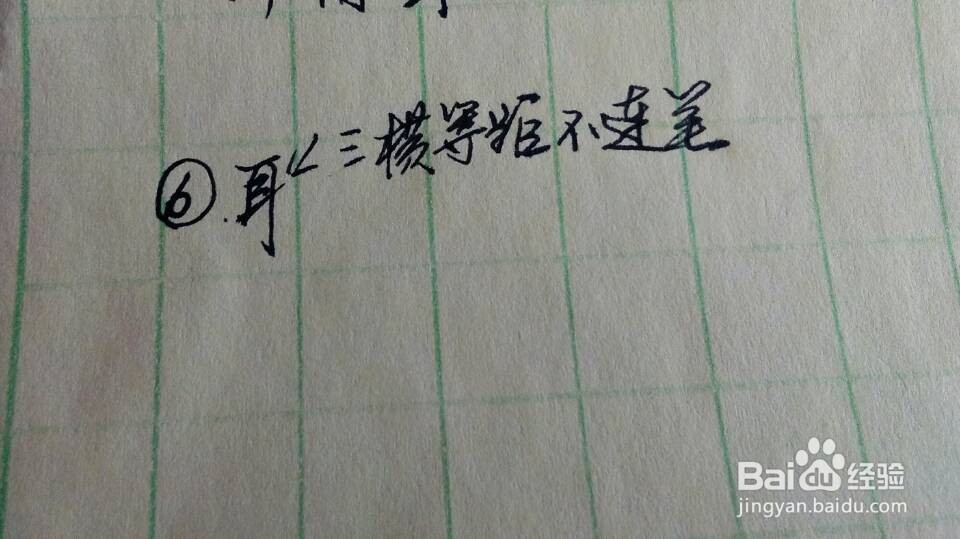 ⑥.耳<三横等距不连笔
Baidu经验
jingyan.baidu.com